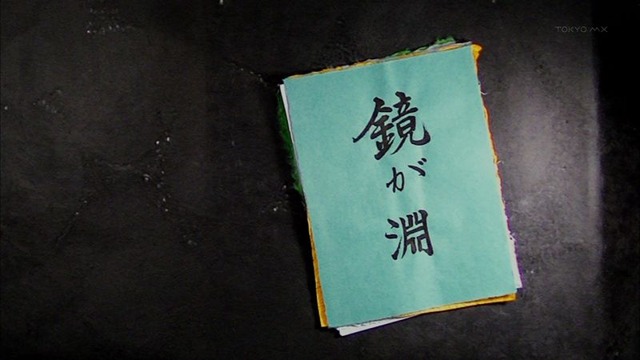 TOKYO MX
鏡が淵